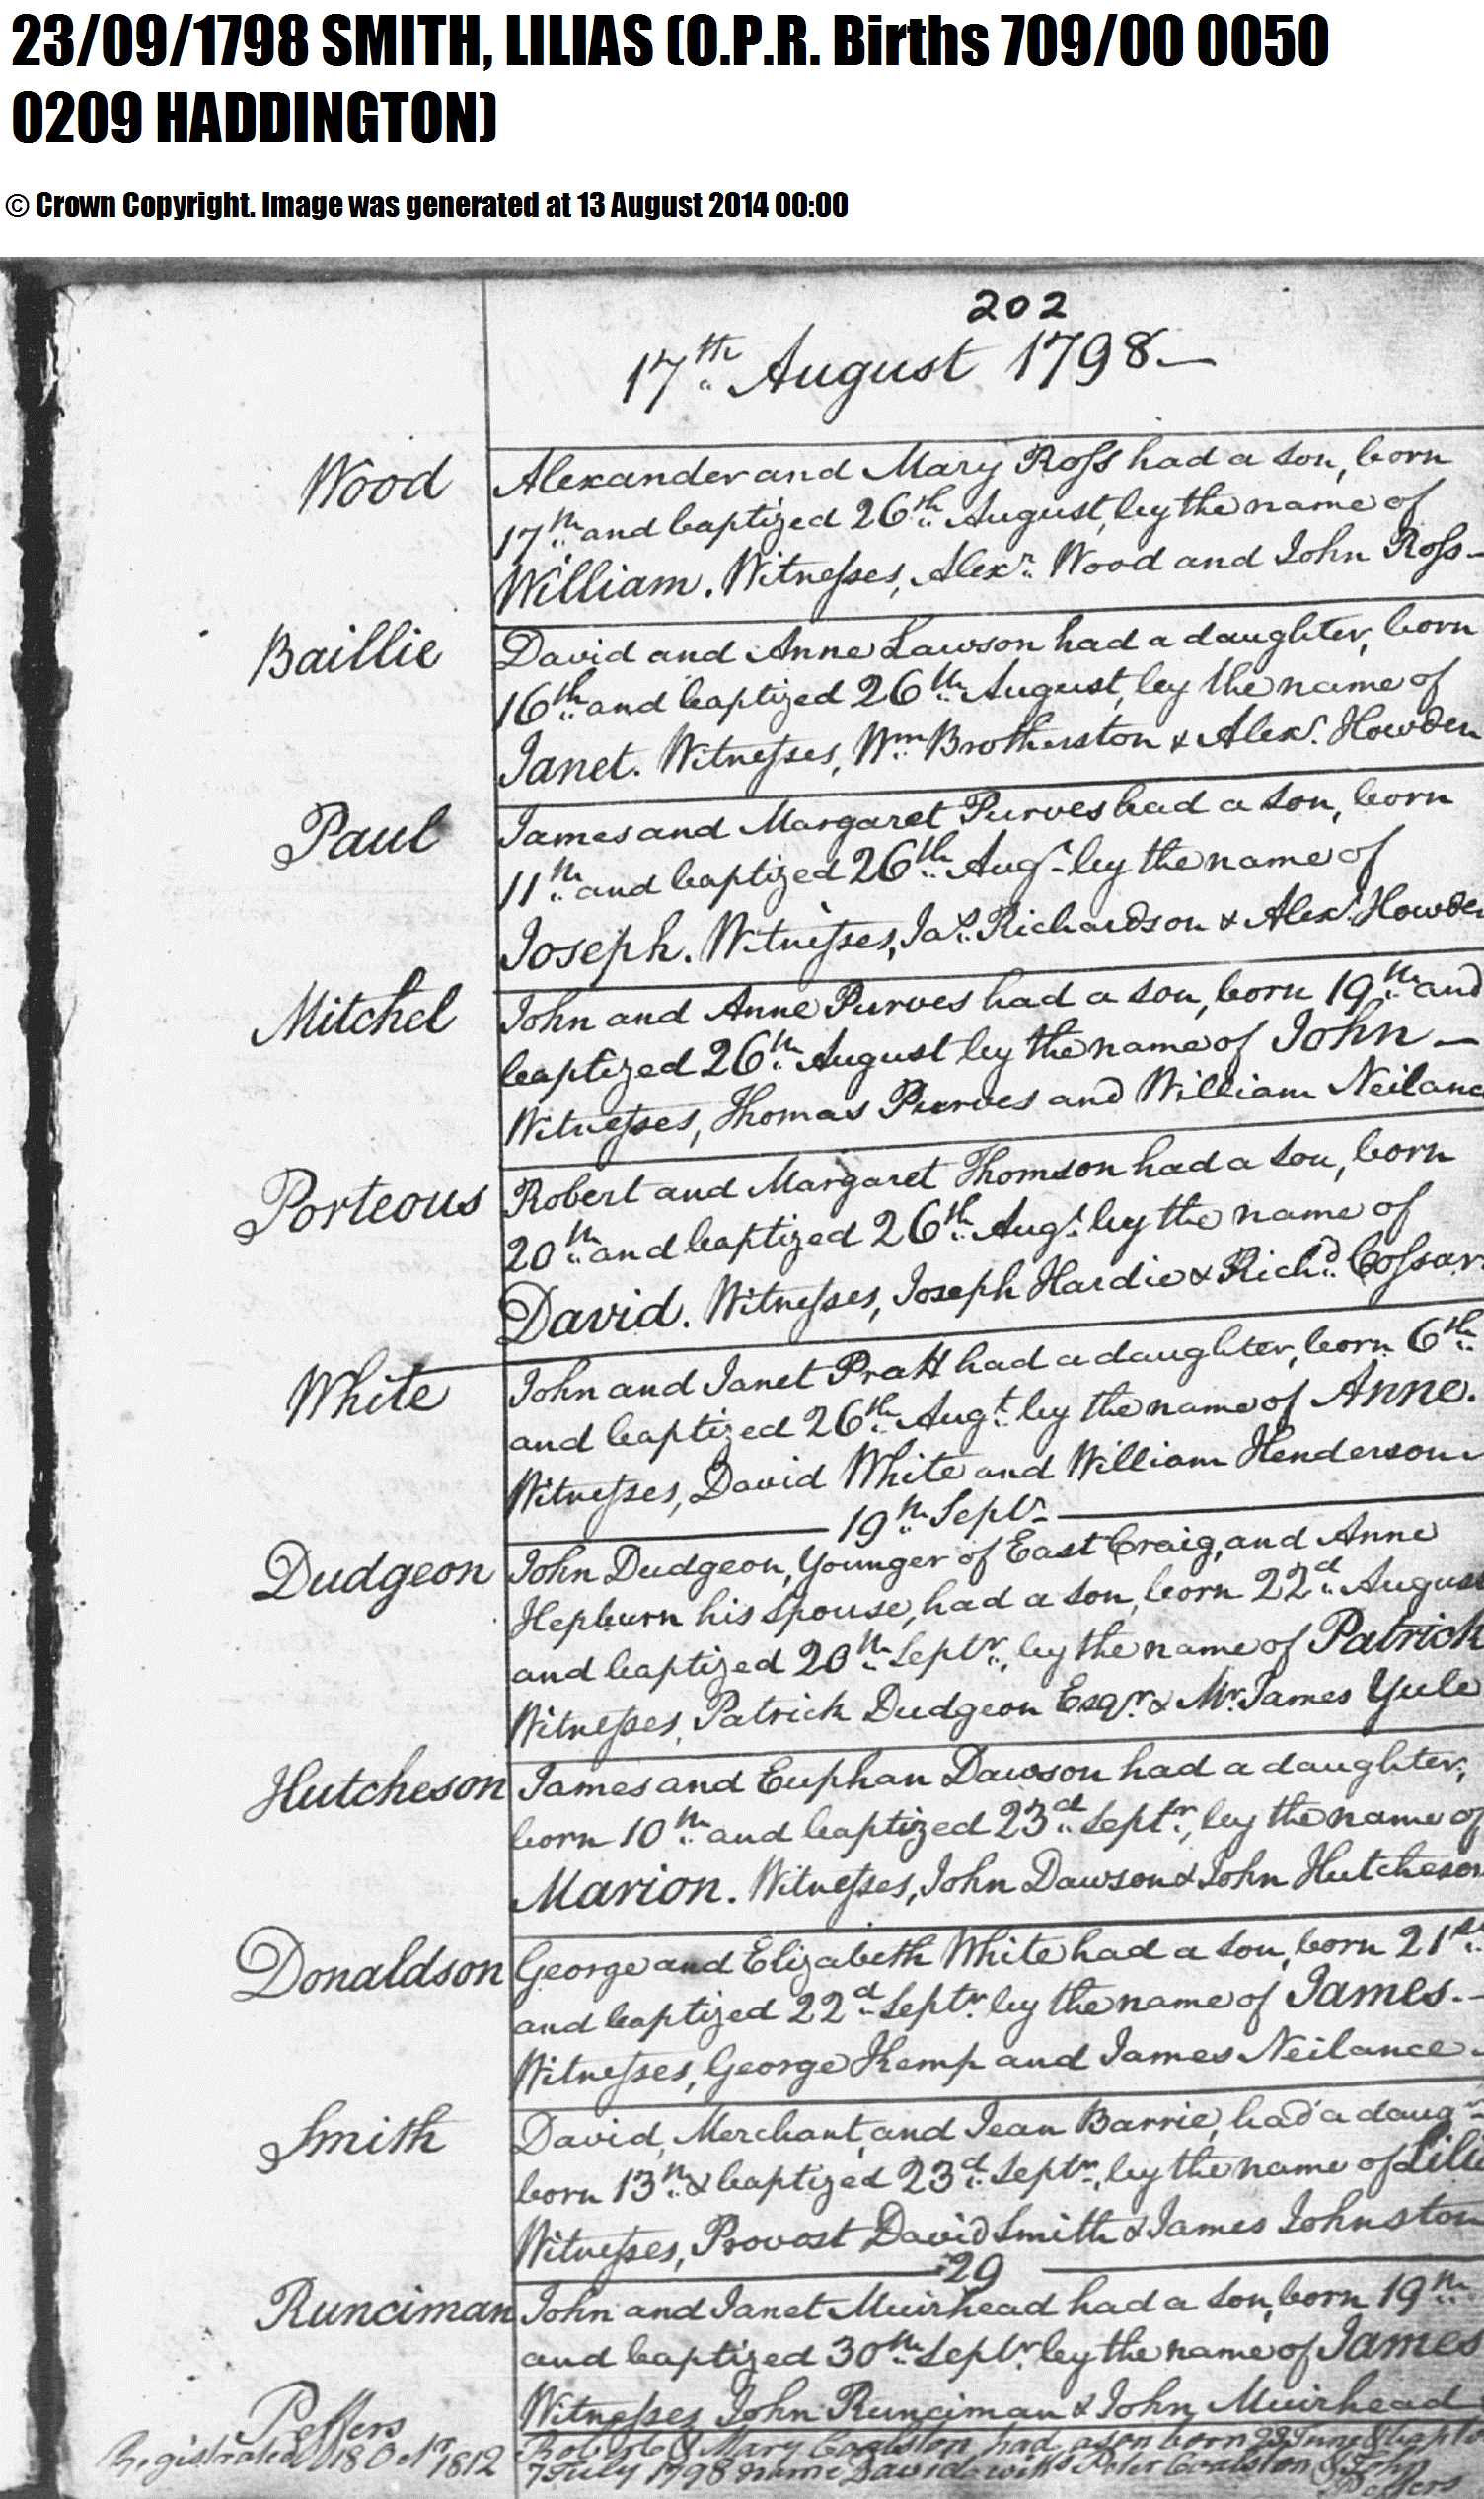 23/09/1798 SMITH, LILIAS (O.P.R. Births 709/00 0050
0209 HADDINGTON)
© Crown Copyright. Image was generated at 13 August 2014 00:00
202
17th August 1798
Wood
Alexander and Mary Ross had a son, born
17th and baptized 26th August, by the name of
William. Witnesses, Alexr. Wood and John Ross
Baillie
David and Anne Lawson had a daughter, born
16th and baptized 26th August, by the name of
Janet. Witnesses, Wm Brotherston & Alexr. Howden
Paul
James and Margaret Purves had a son, born
11th and baptized 26th Augt. by the name of
Joseph. Witnesses, Jas. Richardson & Alexr. Howden
Mitchel
John and Anne Purves had a son, born 19th and
baptized 26th August by the name of John —
Witnesses, Thomas Purves and William Neilance
Porteous
Robert and Margaret Thomson had a son, born
20th and baptized 26th Augt. by the name of
David. Witnesses, Joseph Hardie & Richd. Cossar
White
John and Janet Pratt had a daughter, born 6th
and baptized 26th Augt. by the name of Anne.
Witnesses, David White and William Henderson
19th Septr.
Dudgeon
John Dudgeon, Younger of East Craig, and Anne
Hepburn his Spouse, had a son, born 22d August
and baptized 20th Septr., by the name of Patrick
Witnesses, Patrick Dudgeon Esqr. & Mr. James Yule
Hutcheson
James and Euphan Dawson had a daughter,
born 10th and baptized 23d Septr., by the name of
Marion. Witnesses, John Dawson & John Hutcheson
Donaldson
George and Elizabeth White had a son, born 21st
and baptized 22d Septr. by the name of James. —
Witnesses, George Kemp and James Neilance
Smith
David, Merchant, and Jean Barrie, had a daugr
born 13th & baptized 23d Septr., by the name of Lili
Witnesses, Provost David Smith & James Johnston
29
Runciman
John and Janet Muirhead had a son, born 19th
and baptized 30th Septr. by the name of James
Witnesses John Runciman & John Muirhead
Peffers
Registrated 18 Octr 1812
Robert & Mary Coalston had a son born 22 June & bapt
7 July 1798 name David witts Peter Coalston & John
Peffers